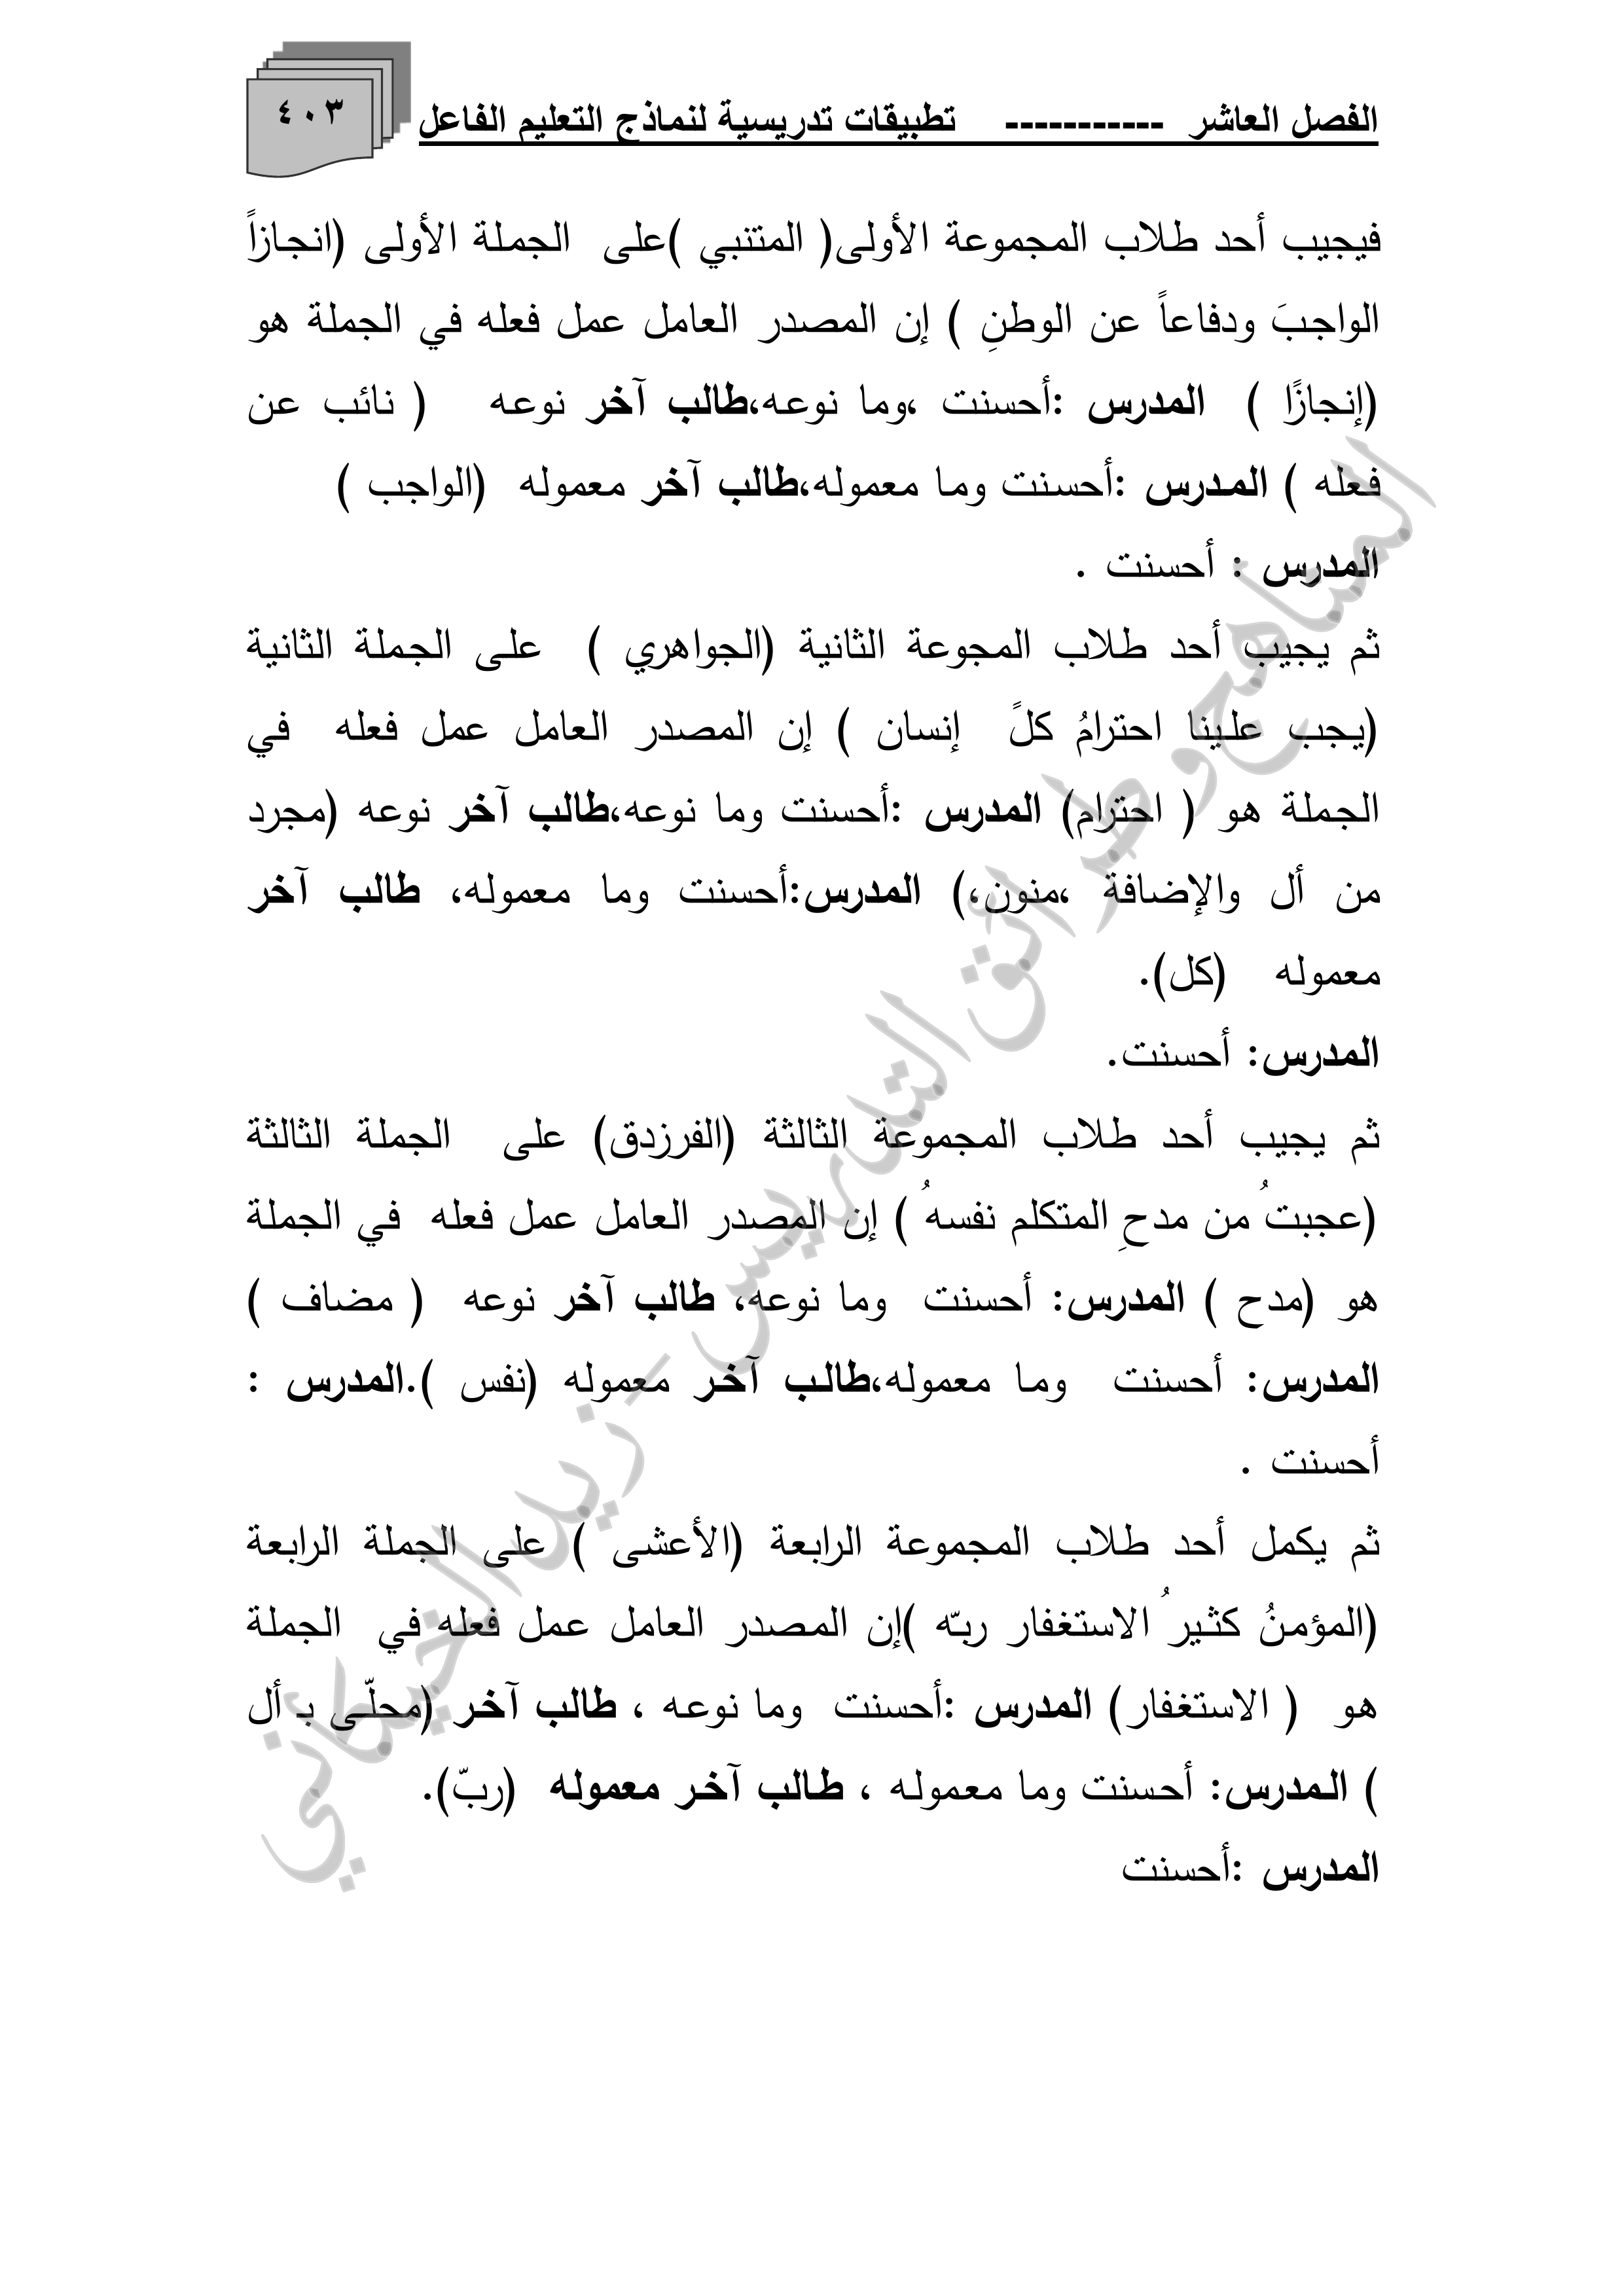 الفصل العاشر ----------- تطبيقات تدريسية لنماذج التعليم الفاعل
٤٠٣
فيجيب أحد طلاب المجموعة الأولى( المتنبي )على الجملة الأولى (انجازاً
الواجبَ ودفاعاً عن الوطنِ ) إن المصدر العامل عمل فعله في الجملة هو
(إنجازًا ) المدرس :أحسنت ،وما نوعه،طالب آخر نوعه ( نائب عن
فعله ) المدرس :أحسنت وما معموله،طالب آخر معموله (الواجب )
المدرس : أحسنت .
ثم يجيب أحد طلاب المجوعة الثانية (الجواهري ) على الجملة الثانية
(يجب علينا احترامُ كلً إنسان ) إن المصدر العامل عمل فعله في
الجملة هو ( احترام) المدرس :أحسنت وما نوعه،طالب آخر نوعه (مجرد
من أل والإضافة ،منون،) المدرس:أحسنت وما معموله، طالب آخر
معموله (كل).
المدرس: أحسنت.
ثم يجيب أحد طلاب المجموعة الثالثة (الفرزدق) على الجملة الثالثة
(عجبتُ من مدحِ المتكلم نفسهُ ) إن المصدر العامل عمل فعله في الجملة
هو (مدح ) المدرس: أحسنت وما نوعه، طالب آخر نوعه ( مضاف )
المدرس: أحسنت وما معموله،طالب آخر معموله (نفس ).المدرس :
أحسنت .
ثم يكمل أحد طلاب المجموعة الرابعة (الأعشى ) على الجملة الرابعة
(المؤمنُ كثيرُ الاستغفار ربّه )إن المصدر العامل عمل فعله في الجملة
هو ( الاستغفار) المدرس :أحسنت وما نوعه ، طالب آخر (محلّى بـ أل
) المدرس: أحسنت وما معموله ، طالب آخر معموله (ربّ).
المدرس :أحسنت
المناهج وطرائق التدريس - زيد الخيكاني